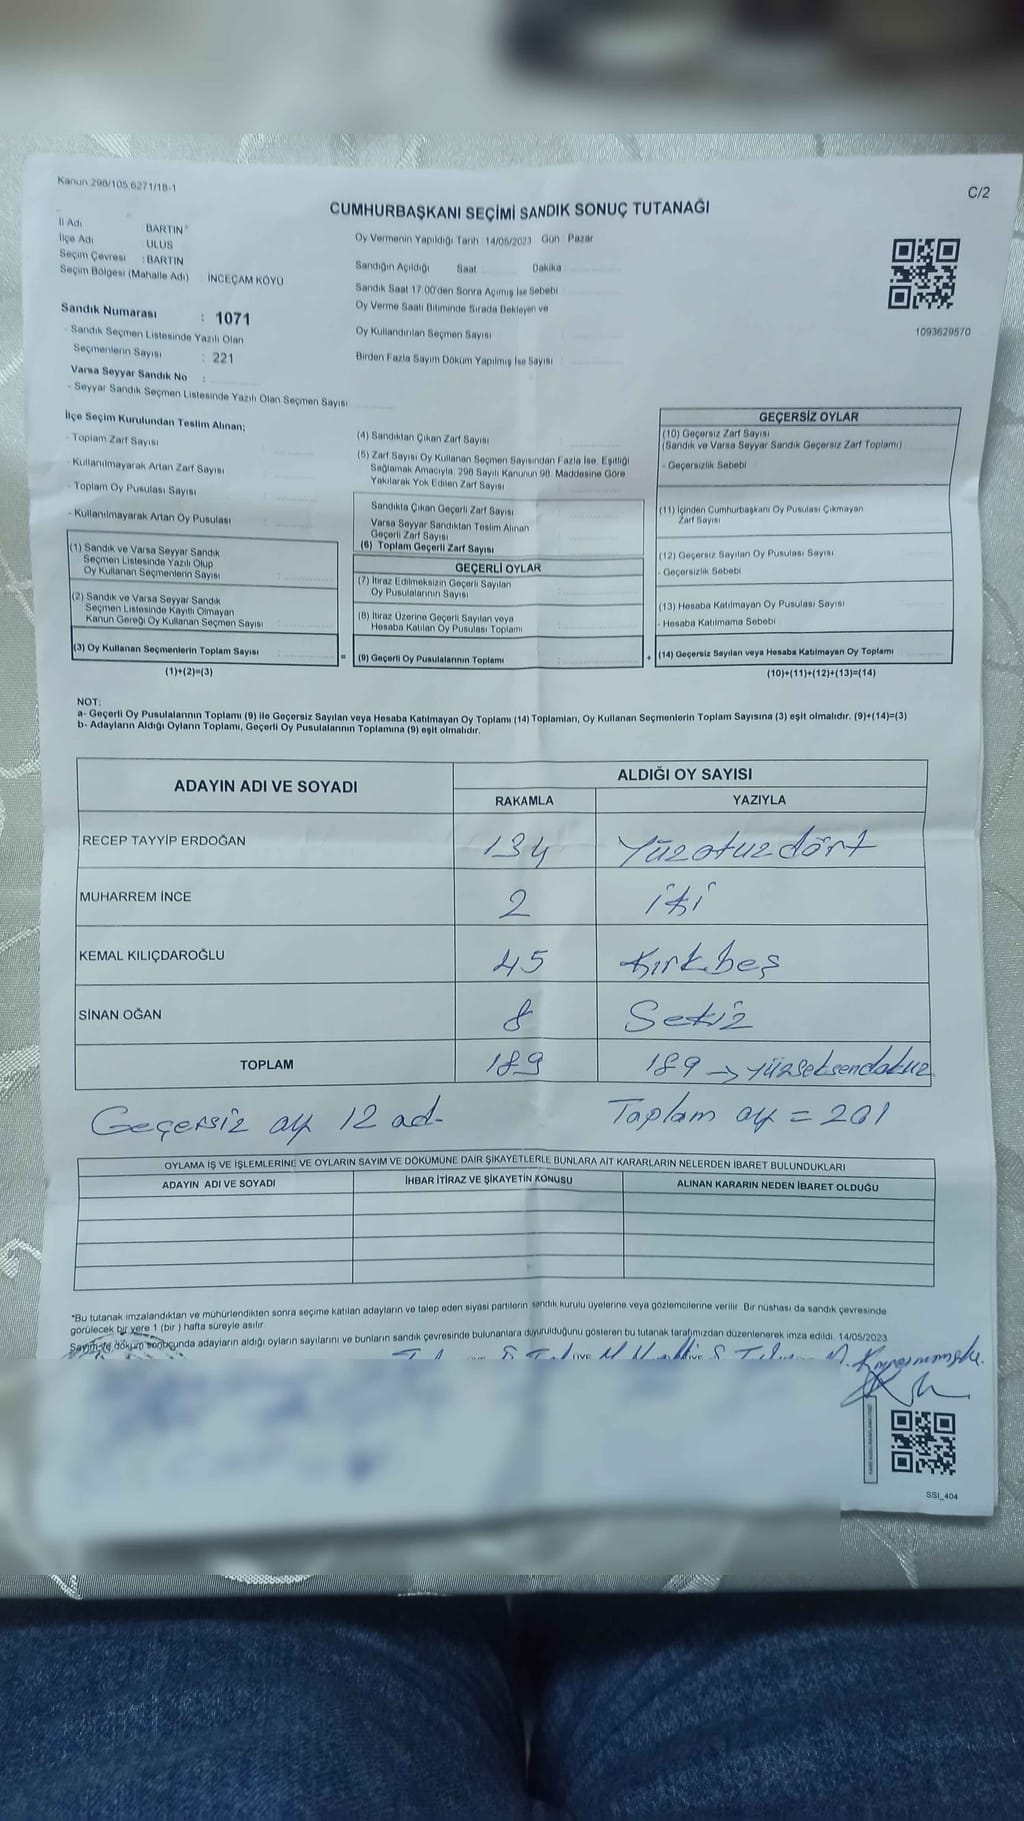 Kanun 298/105,6271/18-1
C/2
CUMHURBAŞKANI SEÇİMİ SANDIK SONUÇ TUTANAĞI
İl Adı BARTIN
İlçe Adı : ULUS
Seçim Çevresi : BARTIN
Seçim Bölgesi (Mahalle Adı) : İNCEÇAM KÖYÜ
Sandık Numarası : 1071
- Sandık Seçmen Listesinde Yazılı Olan
Seçmenlerin Sayısı : 221
Varsa Seyyar Sandık No :
- Seyyar Sandık Seçmen Listesinde Yazılı Olan Seçmen Sayısı
Oy Vermenin Yapıldığı Tarih 14/05/2023 Gün Pazar
Sandığın Açıldığı Saat Dakika
Sandık Saat 17.00'den Sonra Açımış İse Sebebi
Oy Verme Saati Bitiminde Sırada Bekleyen ve
Oy Kullandırılan Seçmen Sayısı
Birden Fazla Sayım Döküm Yapılmış İse Sayısı
1093629570
İlçe Seçim Kurulundan Teslim Alınan;
- Toplam Zarf Sayısı
- Kullanılmayarak Artan Zarf Sayısı
- Toplam Oy Pusulası Sayısı
- Kullanılmayarak Artan Oy Pusulası
(1) Sandık ve Varsa Seyyar Sandık
Seçmen Listesinde Yazılı Olup
Oy Kullanan Seçmenlerin Sayısı
(2) Sandık ve Varsa Seyyar Sandık
Seçmen Listesinde Kayıtlı Olmayan
Kanun Gereği Oy Kullanan Seçmen Sayısı
(3) Oy Kullanan Seçmenlerin Toplam Sayısı
(1)+(2)=(3)
=
(4) Sandıktan Çıkan Zarf Sayısı
(5) Zarf Sayısı Oy Kullanan Seçmen Sayısından Fazla İse, Eşitliği
Sağlamak Amacıyla, 298 Sayılı Kanunun 98. Maddesine Göre
Yakılarak Yok Edilen Zarf Sayısı
Sandıkta Çıkan Geçerli Zarf Sayısı
Varsa Seyyar Sandıktan Teslim Alınan
Geçerli Zarf Sayısı
(6) Toplam Geçerli Zarf Sayısı
GEÇERLİ OYLAR
(7) İtiraz Edilmeksizin Geçerli Sayılan
Oy Pusulalarının Sayısı
(8) İtiraz Üzerine Geçerli Sayılan veya
Hesaba Katılan Oy Pusulası Toplamı
(9) Geçerli Oy Pusulalarının Toplamı
+
GEÇERSİZ OYLAR
(10) Geçersiz Zarf Sayısı
(Sandık ve Varsa Seyyar Sandık Geçersiz Zarf Toplamı)
- Geçersizlik Sebebi
(11) İçinden Cumhurbaşkanı Oy Pusulası Çıkmayan
Zarf Sayısı
(12) Geçersiz Sayılan Oy Pusulası Sayısı
- Geçersizlik Sebebi
(13) Hesaba Katılmayan Oy Pusulası Sayısı
- Hesaba Katılmama Sebebi
(14) Geçersiz Sayılan veya Hesaba Katılmayan Oy Toplamı
(10)+(11)+(12)+(13)=(14)
NOT:
a- Geçerli Oy Pusulalarının Toplamı (9) ile Geçersiz Sayılan veya Hesaba Katılmayan Oy Toplamı (14) Toplamları, Oy Kullanan Seçmenlerin Toplam Sayısına (3) eşit olmalıdır. (9)+(14)=(3)
b- Adayların Aldığı Oyların Toplamı, Geçerli Oy Pusulalarının Toplamına (9) eşit olmalıdır.
ADAYIN ADI VE SOYADI ALDIĞI OY SAYISI
RAKAMLA YAZIYLA
RECEP TAYYİP ERDOĞAN 134 Yüzotuzdört
MUHARREM İNCE 2 iki
KEMAL KILIÇDAROĞLU 45 Kırkbeş
SİNAN OĞAN 8 Sekiz
TOPLAM 189 189 → yüzseksendokuz
Geçersiz oy 12 ad- Toplam oy = 201
OYLAMA İŞ VE İŞLEMLERİNE VE OYLARIN SAYIM VE DÖKÜMÜNE DAİR ŞİKAYETLERLE BUNLARA AİT KARARLARIN NELERDEN İBARET BULUNDUKLARI
ADAYIN ADI VE SOYADI İHBAR İTİRAZ VE ŞİKAYETİN KONUSU ALINAN KARARIN NEDEN İBARET OLDUĞU
*Bu tutanak imzalandıktan ve mühürlendikten sonra seçime katılan adayların ve talep eden siyasi partilerin sandık kurulu üyelerine veya gözlemcilerine verilir. Bir nüshası da sandık çevresinde
görülecek bir yere 1 (bir ) hafta süreyle asılır.
Sayım ve döküm sonucunda adayların aldığı oyların sayılarını ve bunların sandık çevresinde bulunanlara duyurulduğunu gösteren bu tutanak tarafımızdan düzenlenerek imza edildi. 14/05/2023
SSI_404